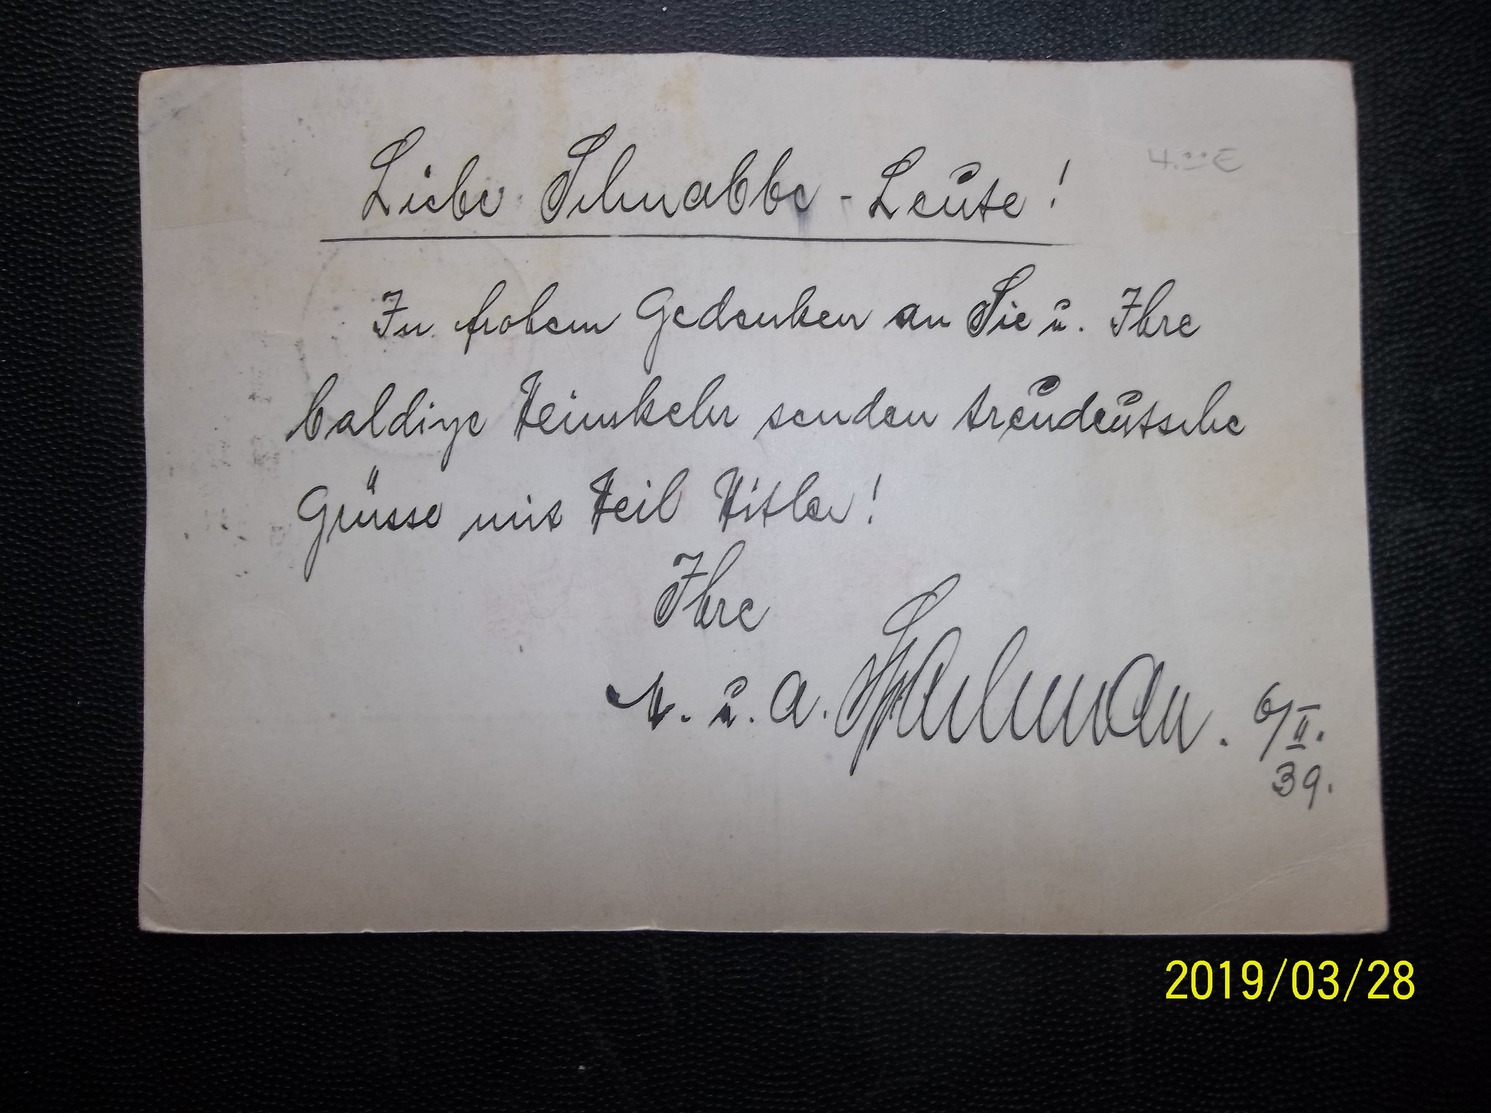 Liebe Schnabbe - Leute!
4.00€
In frohem Gedenken an Sie u. Ihre
baldige Heimkehr senden treudeutsche
Grüsse mit Heil Hitler!
Ihre
u. A. 6/II.
39.
2019/03/28